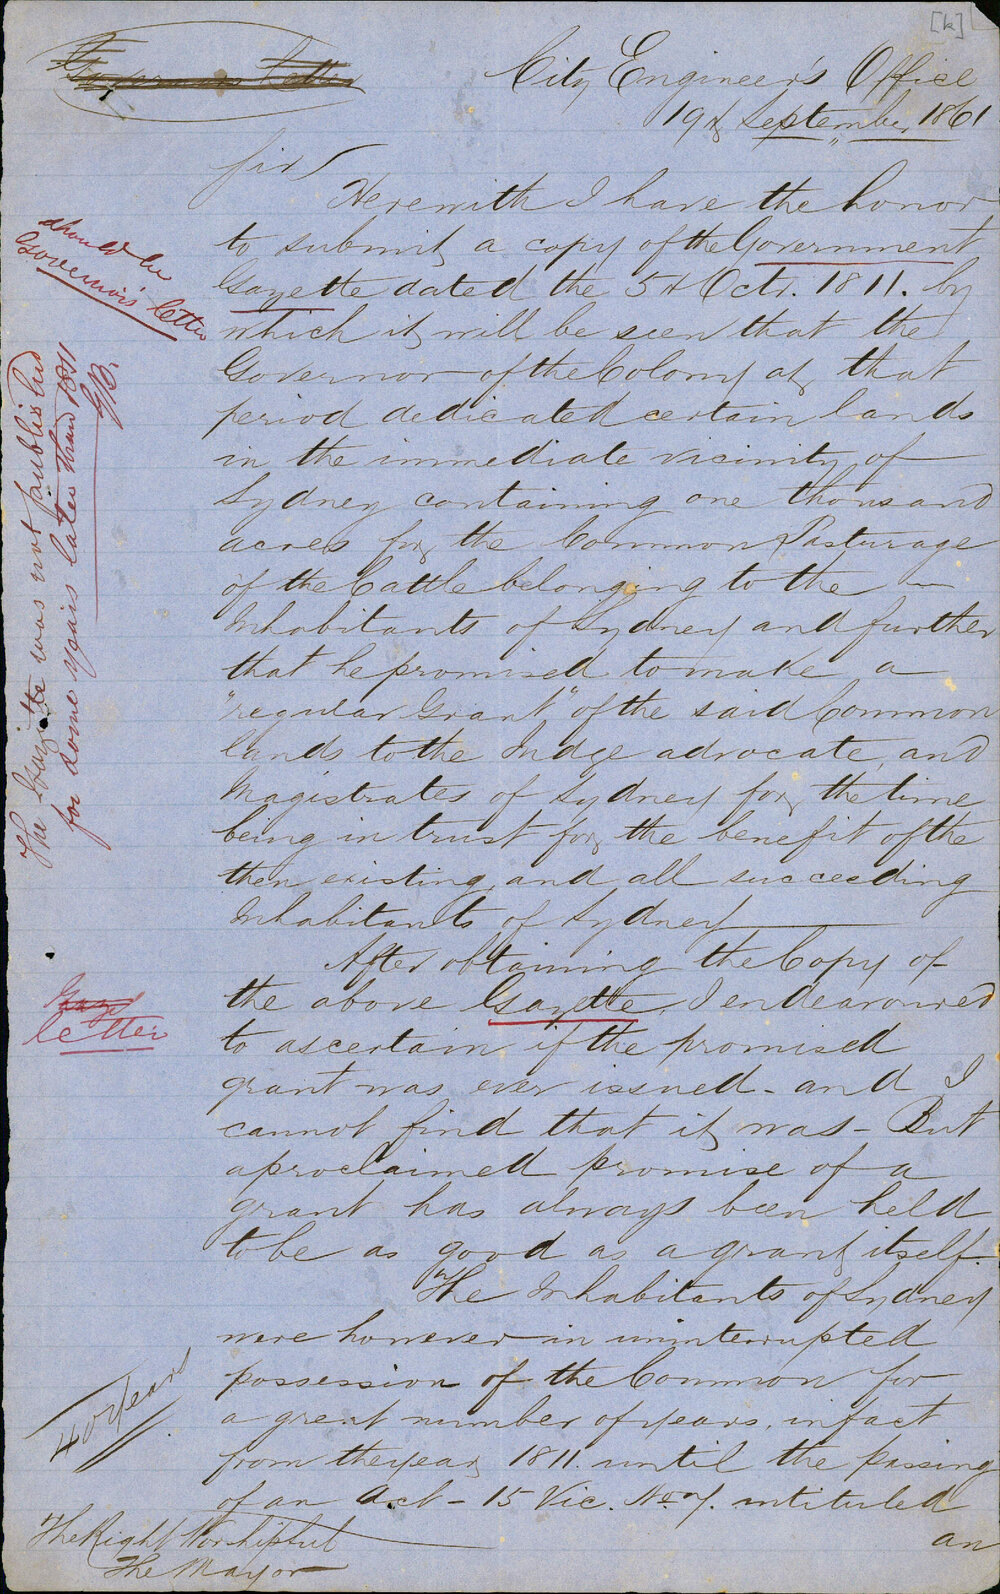 [k]
Governors Letter
City Engineer's Office
19th September, 1861
Sir/
Herewith I have the honor
to submit a copy of the Government
Gazette dated the 5th Octr. 1811. by
which it will be seen that the
Governor of the Colony at that
period dedicated certain lands
in the immediate vicinity of
Sydney containing one thousand
acres for the Common Pasturage
of the Cattle belonging to the
Inhabitants of Sydney and further
that he promised to make a
"regular Grant" of the said Common
lands to the Judge advocate, and
Magistrates of Sydney for the time
being in trust for the benefit of the
then existing, and all succeeding
Inhabitants of Sydney
After obtaining the Copy of
the above Gazette, I endeavoured
to ascertain if the promised
grant was ever issued - and I
cannot find that it was - But
a proclaimed promise of a
grant has always been held
to be as good as a grant itself.
The Inhabitants of Sydney
were however in uninterrupted
possession of the Common for
a great number of years, in fact
from the year 1811. until the passing
of an Act - 15 Vic. No. 7. intituled
an
should be
Governor's letter
The Gazette was not published
for some years later than 1811
GB.
Gaz
letter
40 years
The Right Worshipful
The Mayor